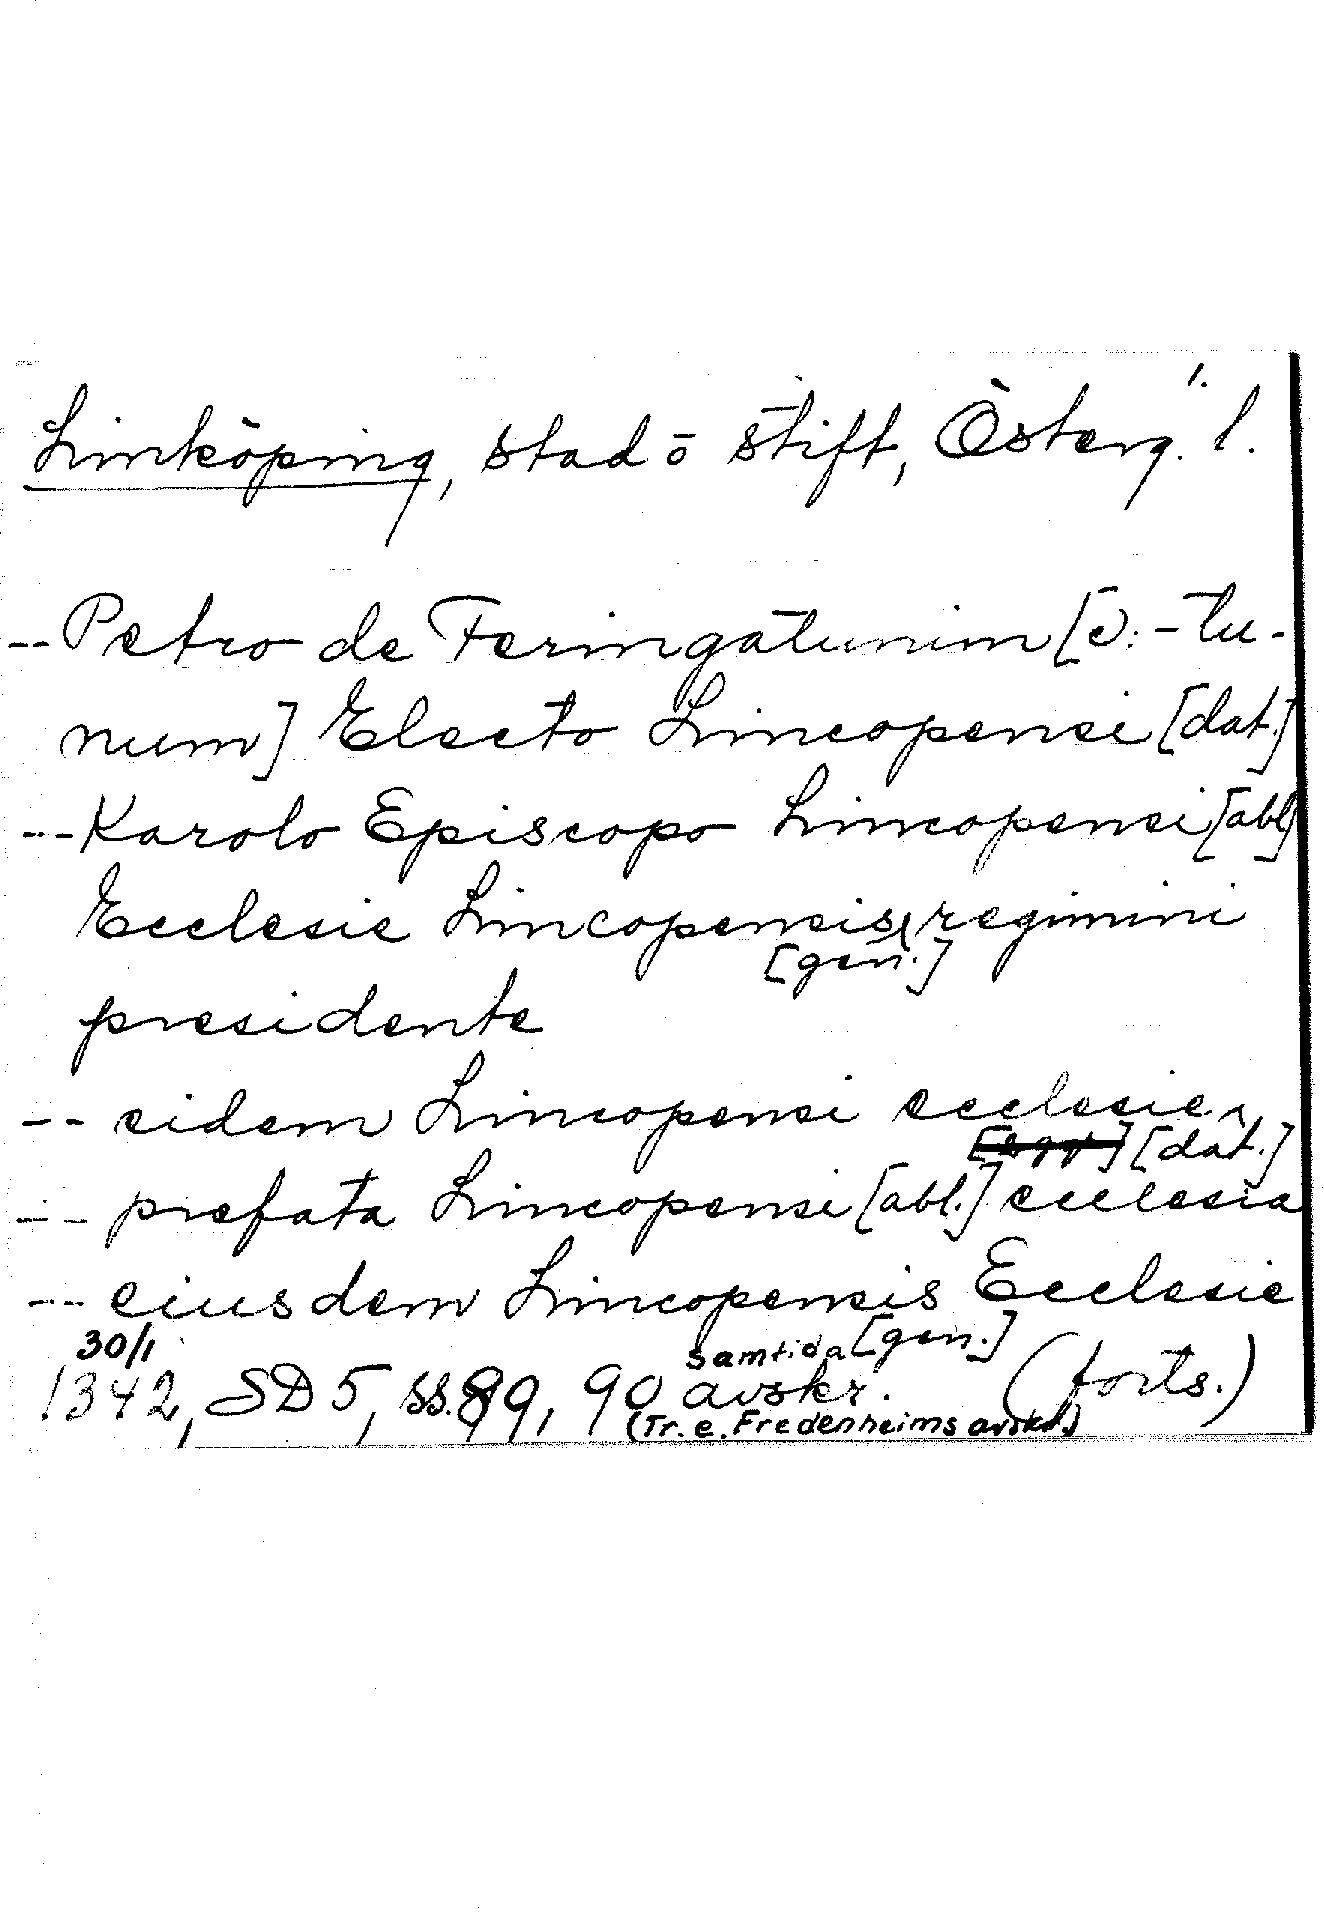 1.
Linköping, stad o stift, Österg. l.
-- Petro de Feringatunim [ɔ: -tu-
num] Electo Lincopensi [dat.]
--- Karolo Episcopo Lincopensi [abl.]
Ecclesie Lincopensis regimini
[gen.]
presidente
-- eidem Lincopensi ecclesie
[dat.]
-- prefata Lincopensi [abl.] ecclesia
--- eiusdem Lincopensis Ecclesie
30/1 samtida [gen.]
1342, SD 5, ss. 89, 90 avskr. (forts.)
(Tr. e. Fredenheims avskr.)